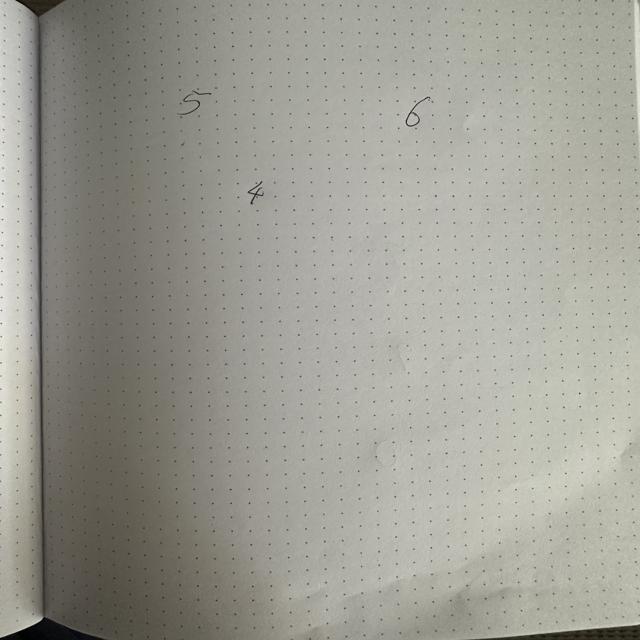 5 6
4